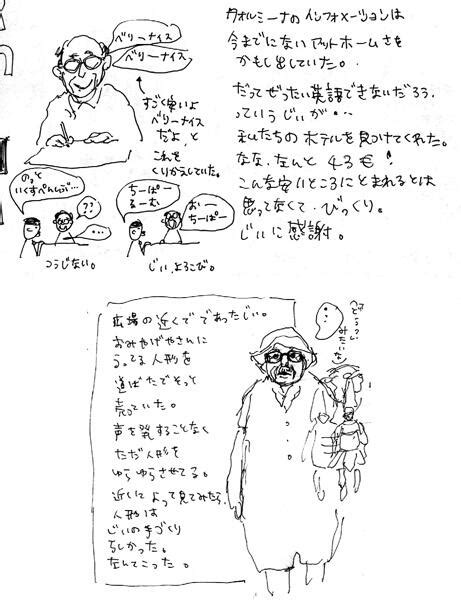 ベリーナイス
ベリーナイス
すごく安いよ
ベリーナイス
だよ、と
これを
くりかえしていた。
のっと
いくすぺんしぶ…
??
…
つうじない。
ちーぱー
るーむ
おー
ちーぱー
じい、よろこび。
タオルミーナのインフォメーションは
今までにないアットホームさを
かもし出していた。
だってぜったい英語できないだろう、
っていうじいが・・
私たちのホテルを見つけてくれた。
なな、なんと 43€!
こんな安いところにとまれるとは
思ってなくて・びっくり。
じいに感謝。
広場の近くでであったじい。
おみやげやさんに
うってる人形を
道ばたでそっと
売っていた。
声を発することなく
ただ人形を
ゆらゆらさせてる。
近くによって見てみたら、
人形は
じいの手づくり
らしかった。
なんてこった。
…
みたいな